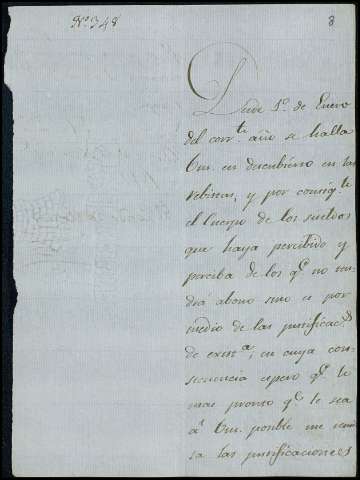 Nº 348
8
Desde 1º. de Enero
del corr.te año se halla
Vm. en descubierto en las
rebistas, y por consig.te
el Cuerpo de los sueldos
que haya percibido y
perciba de los q.e no ten
drá abono sino es por
medio de las justificac.s
de exist.a, en cuya con
secuencia espero q.e lo
mas pronto q.e le sea
a Vm. posible me remi
ta las justificaciones